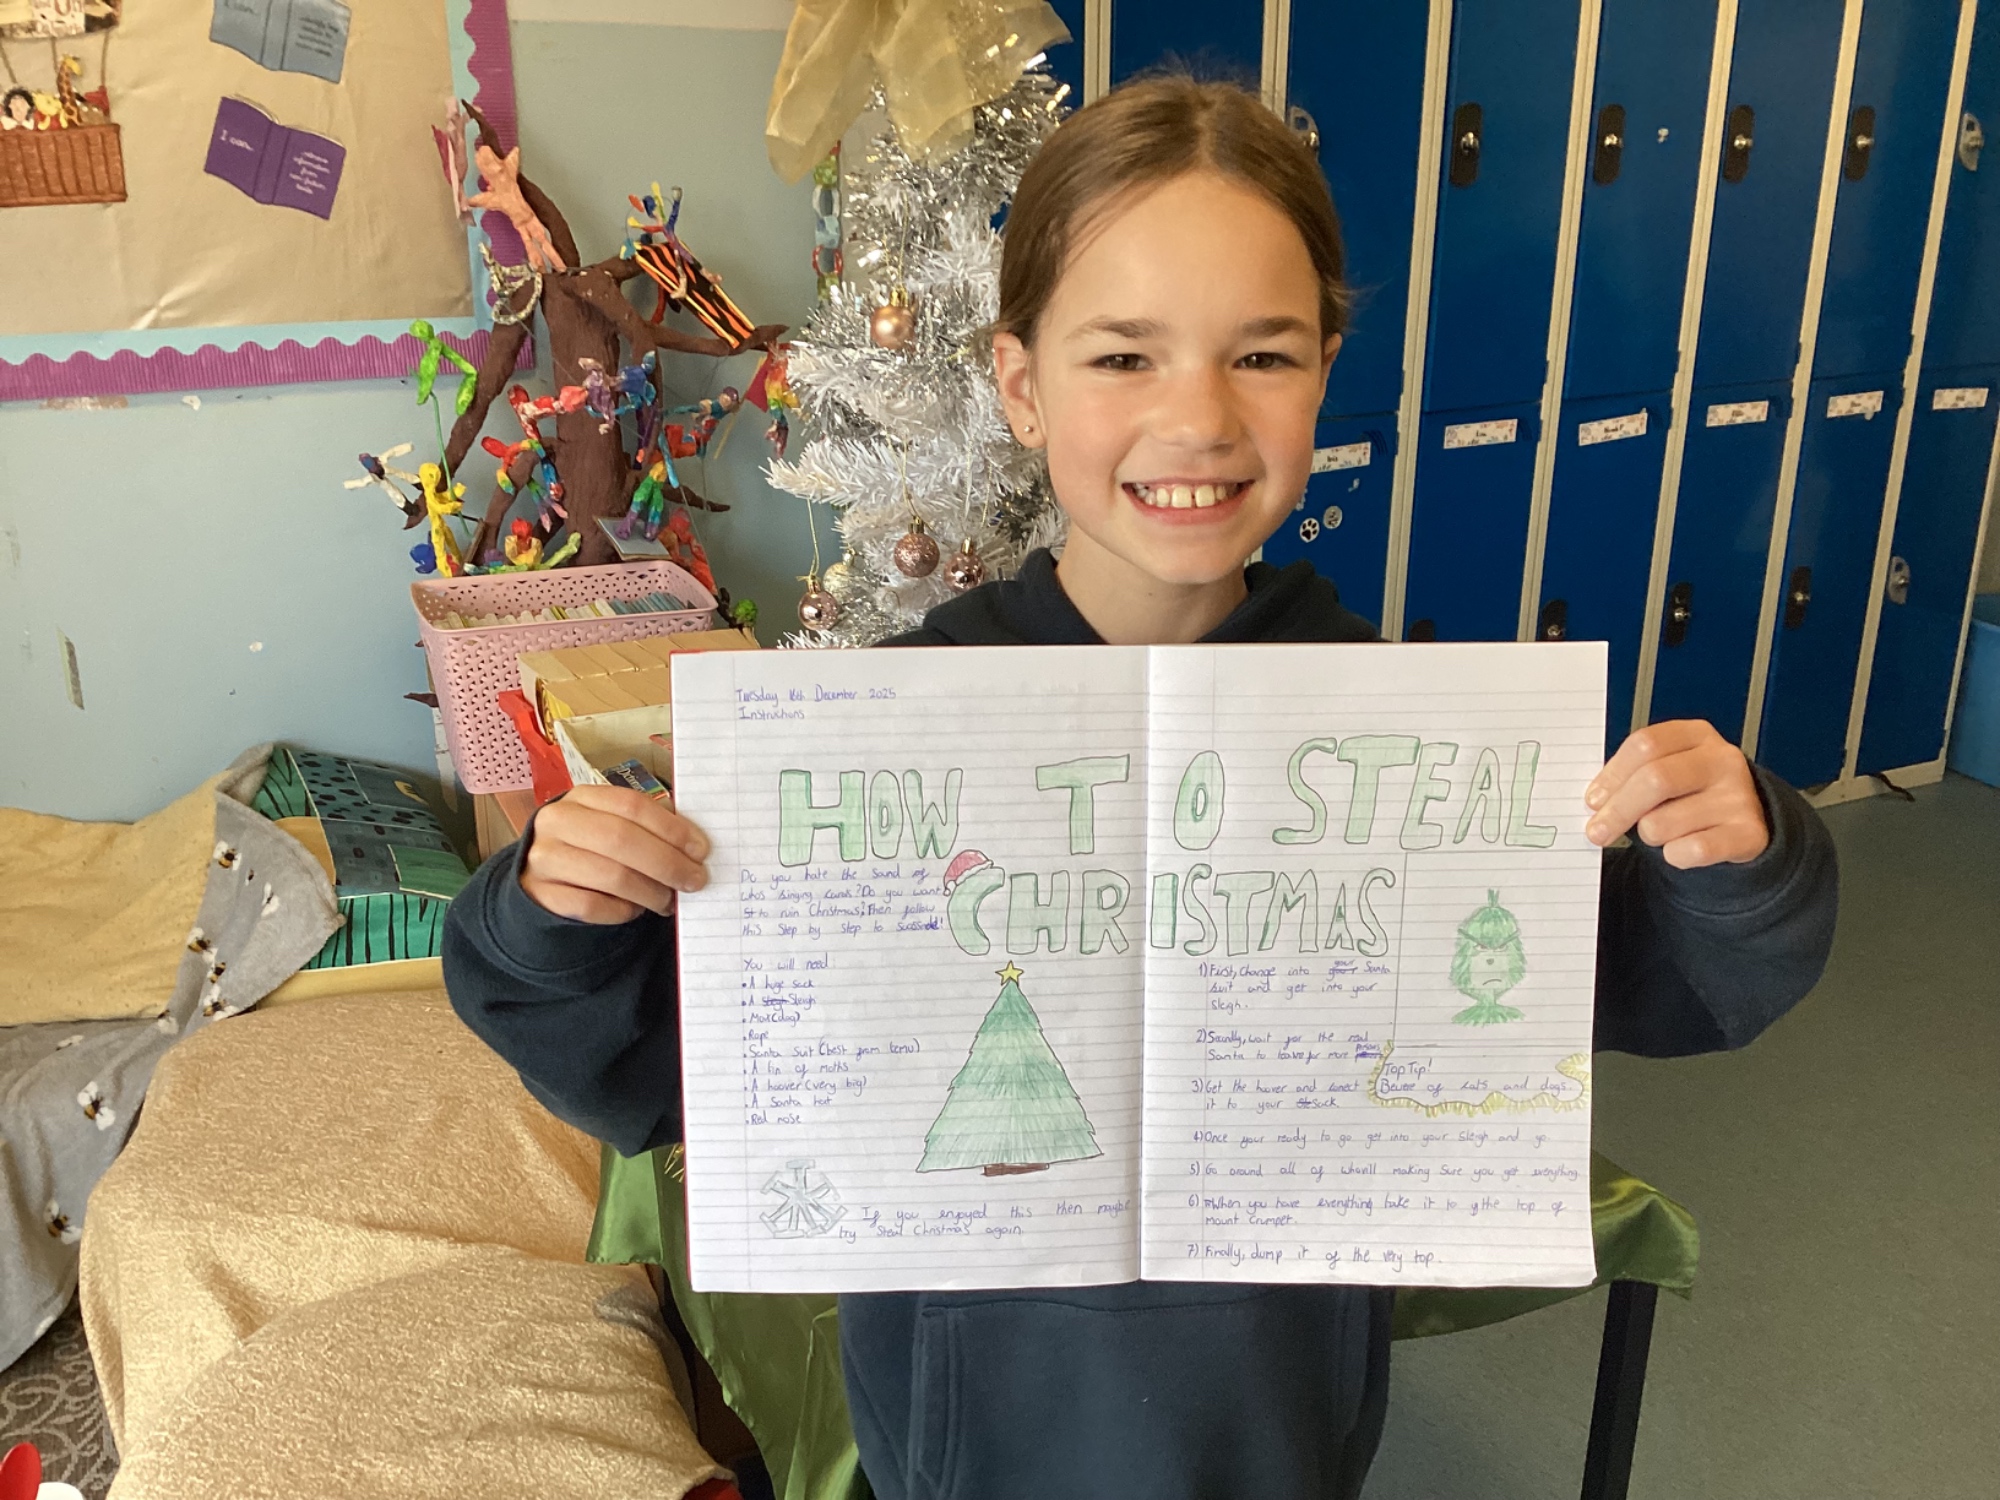 I can...
I can...
...retrieve
information
from
non-fiction
texts
Tuesday 16th December 2025
Instructions
HOW TO STEAL
CHRISTMAS
Do you hate the sound of
who's singing carols? Do you want
to ruin Christmas? Then follow
this step by step to
You will need
• A huge sack
• A Sleigh
• Max (dog)
• Rope
• Santa suit (best from temu)
• A tin of moths
• A hoover (very big)
• A Santa hat
• Red nose
If you enjoyed this then maybe
try Steal Christmas again.
1) First, change into your Santa
suit and get into your
sleigh.
2) Secondly, wait for the real
Santa to leave for more
3) Get the hoover and conect
it to your sack.
Top Tip!
Beware of cats and dogs.
4) Once your ready to go get into your sleigh and go.
5) Go around all of whovill making sure you get everything.
6) When you have everything take it to the top of
Mount Crumpet.
7) Finally, dump it of the very top.